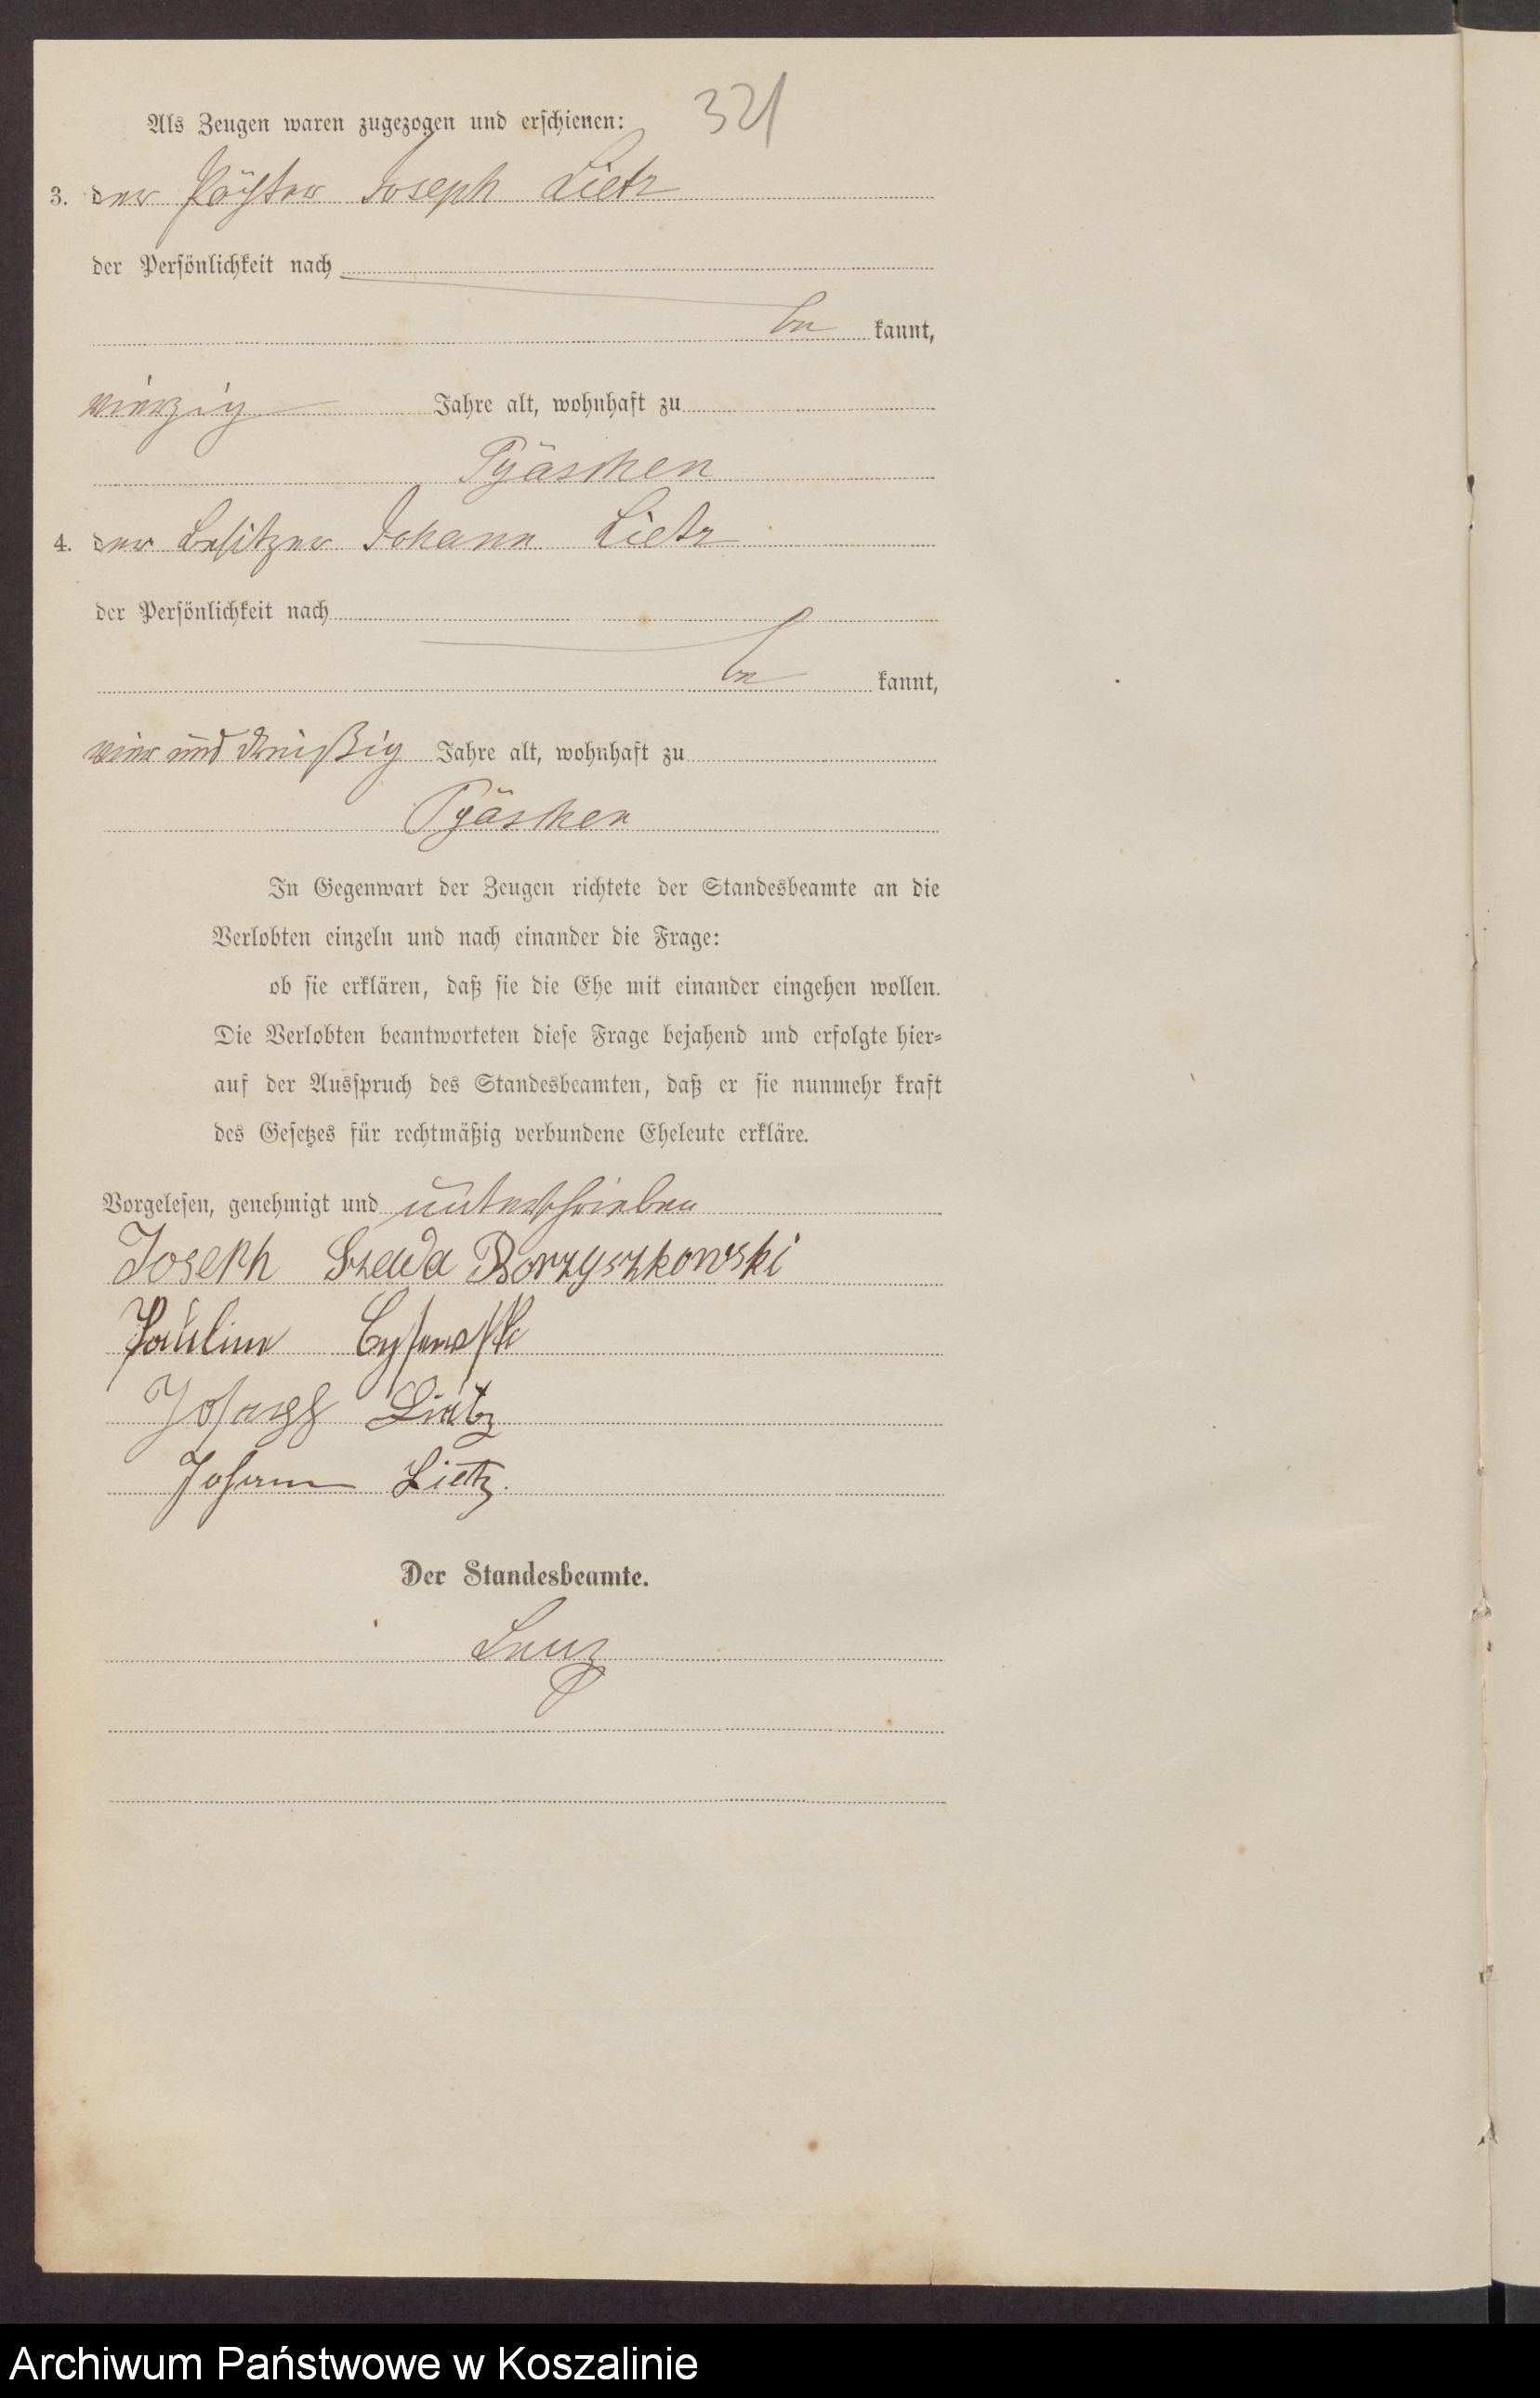 321
Als Zeugen waren zugezogen und erschienen:
3. der Pächter Joseph Lietz
der Persönlichkeit nach
be kannt,
vierzig Jahre alt, wohnhaft zu
Pyaschen
4. der Besitzer Johann Lietz
der Persönlichkeit nach
be kannt,
vier und dreißig Jahre alt, wohnhaft zu
Pyaschen
In Gegenwart der Zeugen richtete der Standesbeamte an die
Verlobten einzeln und nach einander die Frage:
ob sie erklären, daß sie die Ehe mit einander eingehen wollen.
Die Verlobten beantworteten diese Frage bejahend und erfolgte hier=
auf der Ausspruch des Standesbeamten, daß er sie nunmehr kraft
des Gesetzes für rechtmäßig verbundene Eheleute erkläre.
Vorgelesen, genehmigt und unterschrieben
Joseph Borzyszkowski
Pauline
Joseph Lietz
Johann Lietz.
Der Standesbeamte.
Archiwum Państwowe w Koszalinie